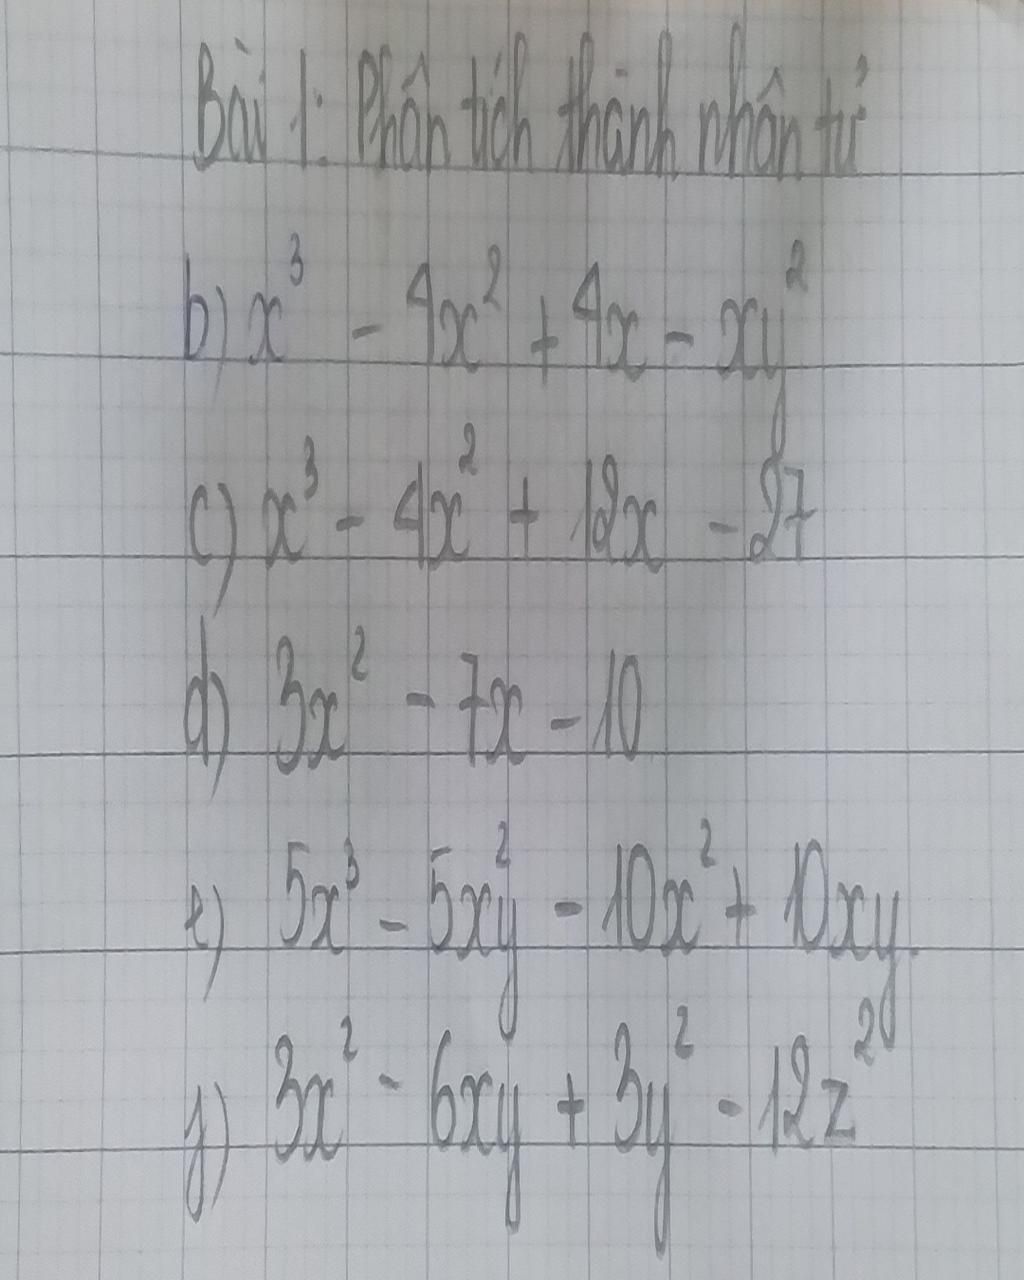 Bài 1: Phân tích thành nhân tử
b) x³ - 4x² + 4x - xy²
c) x³ - 4x² + 12x - 27
d) 3x² - 7x - 10
e) 5x³ - 5xy² - 10x² + 10xy.
f) 3x² - 6xy + 3y² - 12z²